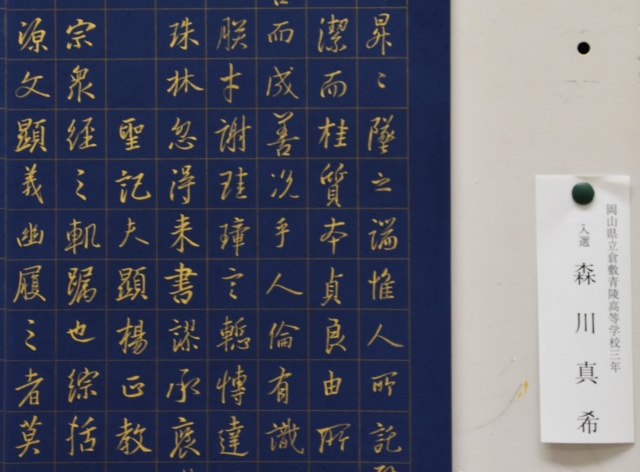 昇〻墜之端惟人所託
潔而桂質本貞良由所
而成善況乎人倫有識
朕才謝珪璋言慙博達
珠林忽得来書謬承褒
聖記夫顕揚正教
宗衆経之軌躅也綜括
源文顕義幽履之者莫
岡山県立倉敷青陵高等学校三年
入選 森川真希